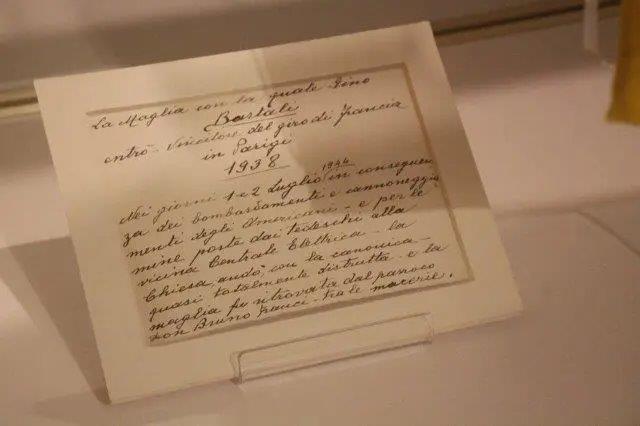 La Maglia con la quale Gino
Bartali
entrò - Vincitore del giro di Francia
in Parigi
1938
Nei giorni 1 e 2 Luglio 1944 in conseguen
za dei bombardamenti e cannoneggia
menti degli Americani - e per le
mine poste dai tedeschi alla
vicina Centrale Elettrica - la
Chiesa, andò, con la canonica -
quasi totalmente distrutta - e la
maglia fu ritrovata dal parroco
Don Bruno Franci - tra le macerie.